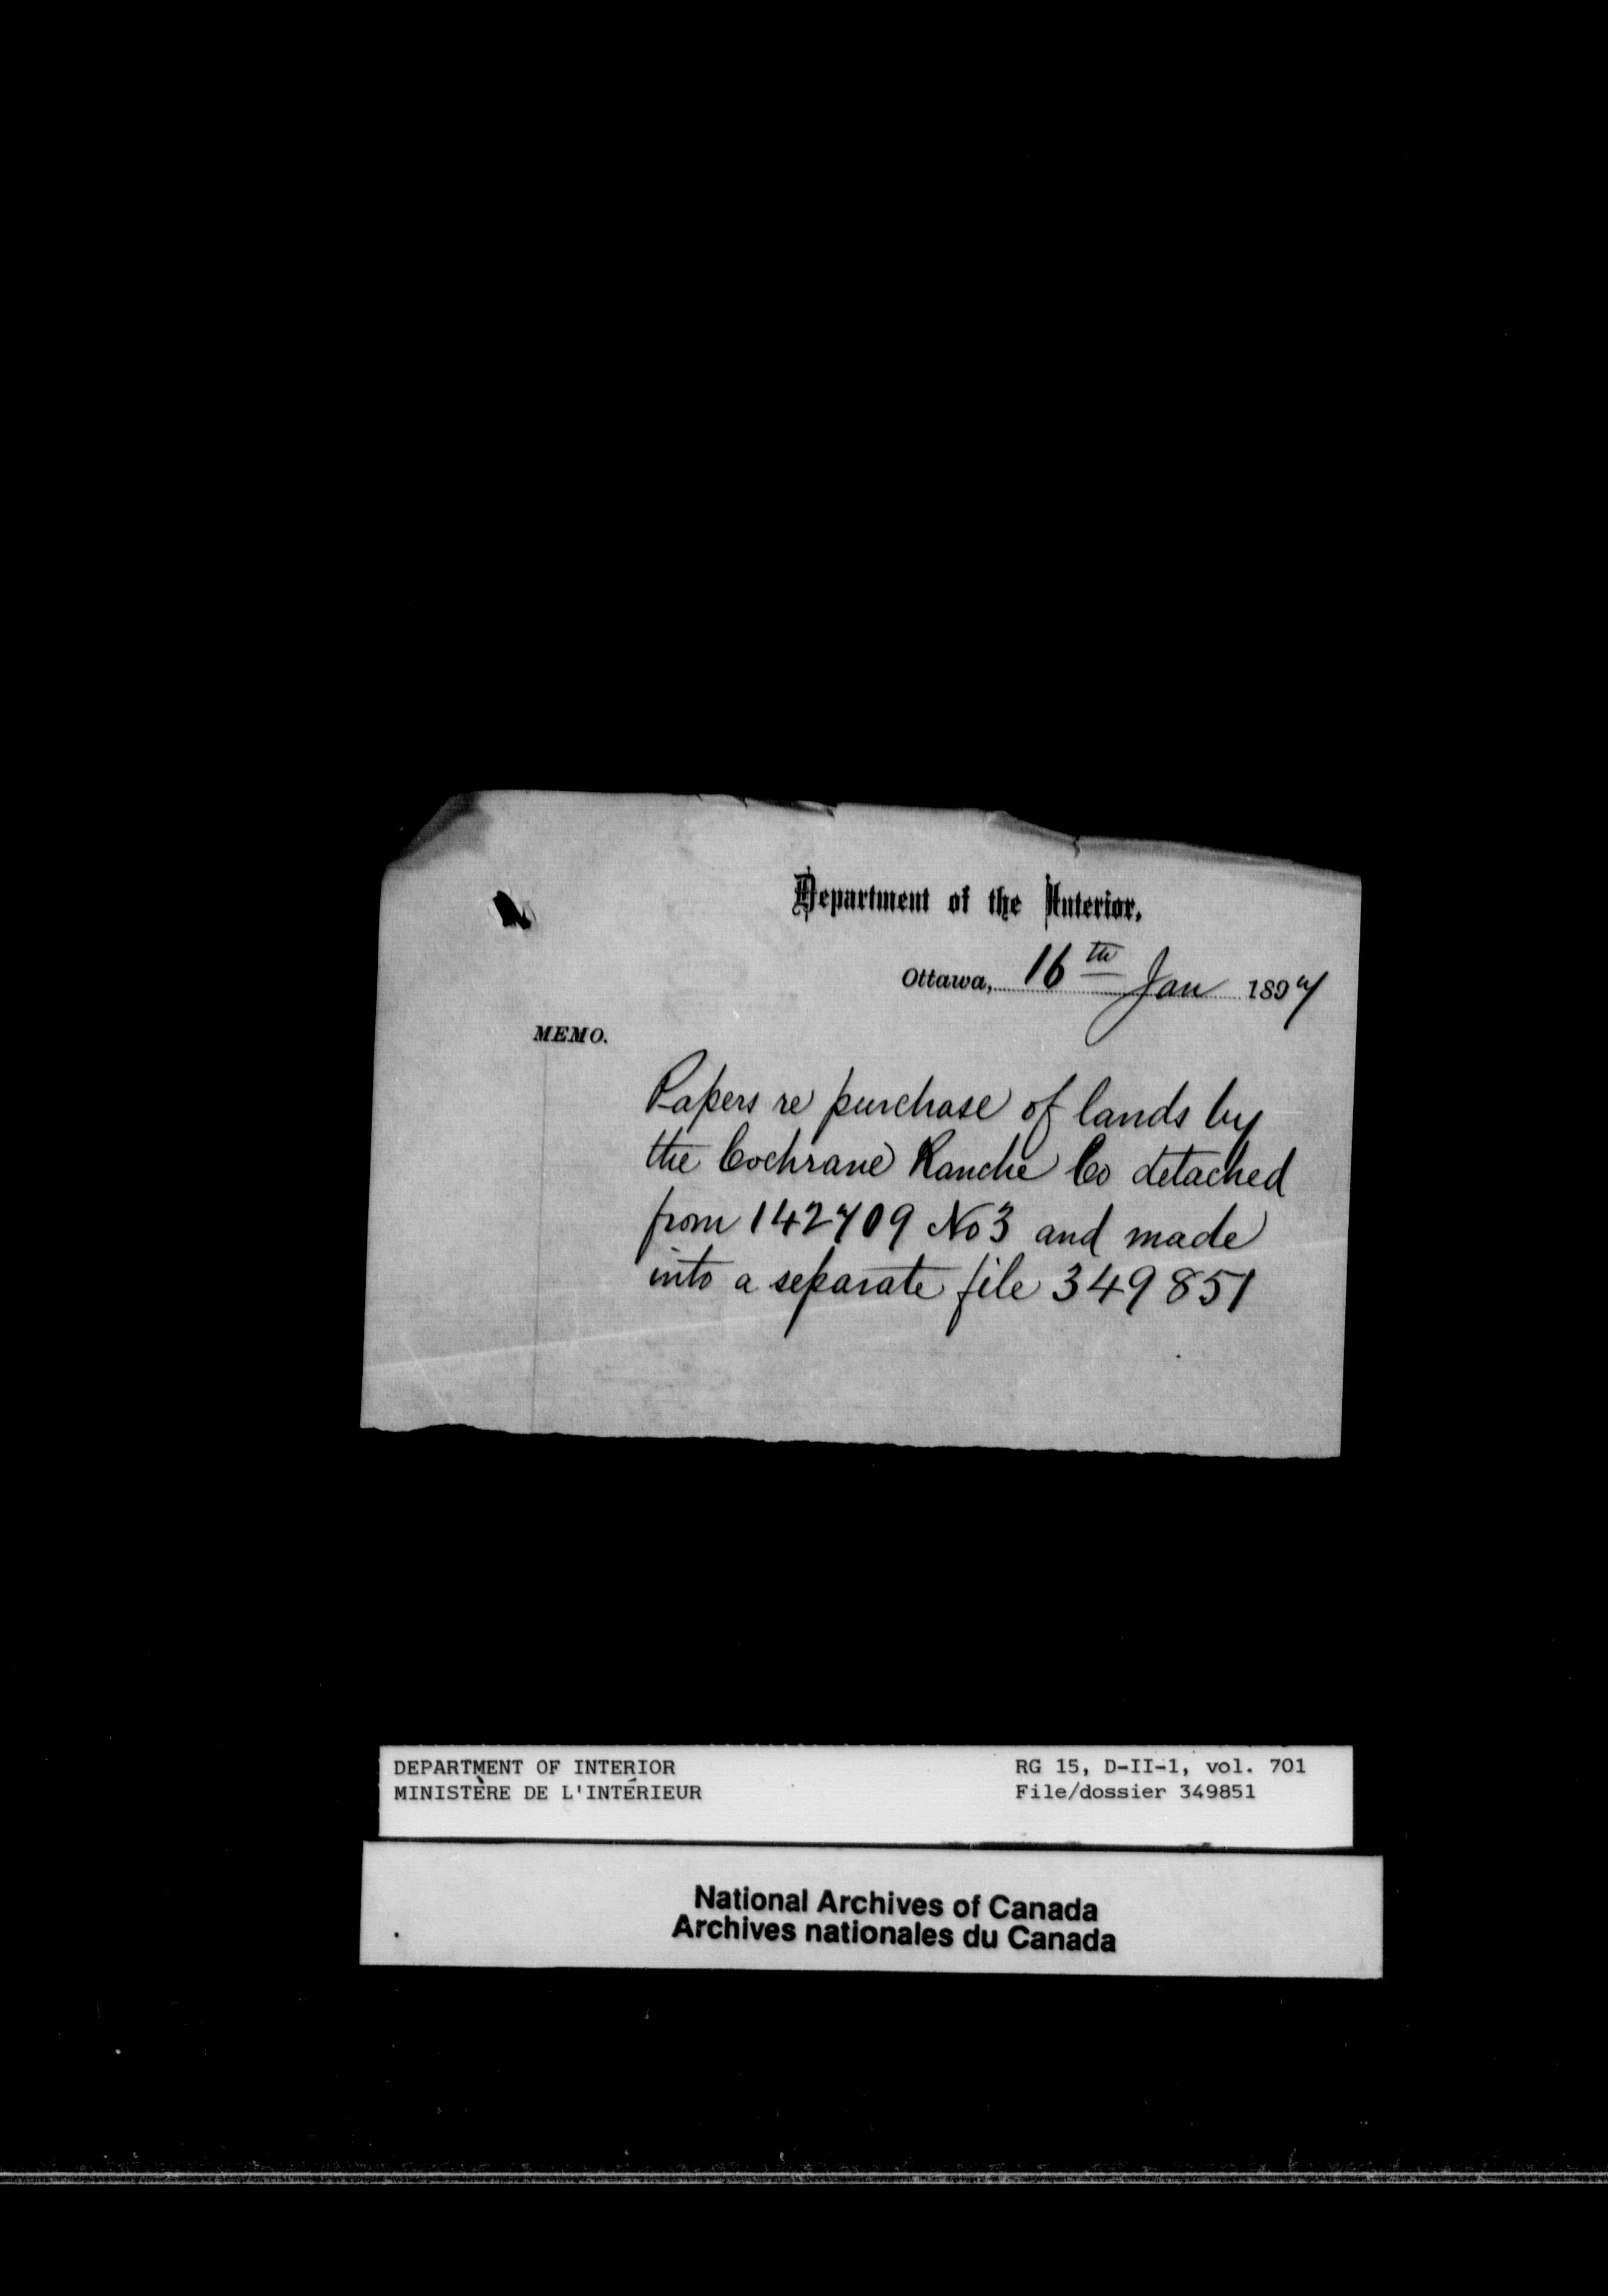 Department of the Interior.
Ottawa, 16th Jan 1897
MEMO.
Papers re purchase of lands by
the Cochrane Ranche Co detached
from 142709 No 3 and made
into a separate file 349851
DEPARTMENT OF INTERIOR
MINISTÈRE DE L'INTÉRIEUR
RG 15, D-II-1, vol. 701
File/dossier 349851
National Archives of Canada
Archives nationales du Canada